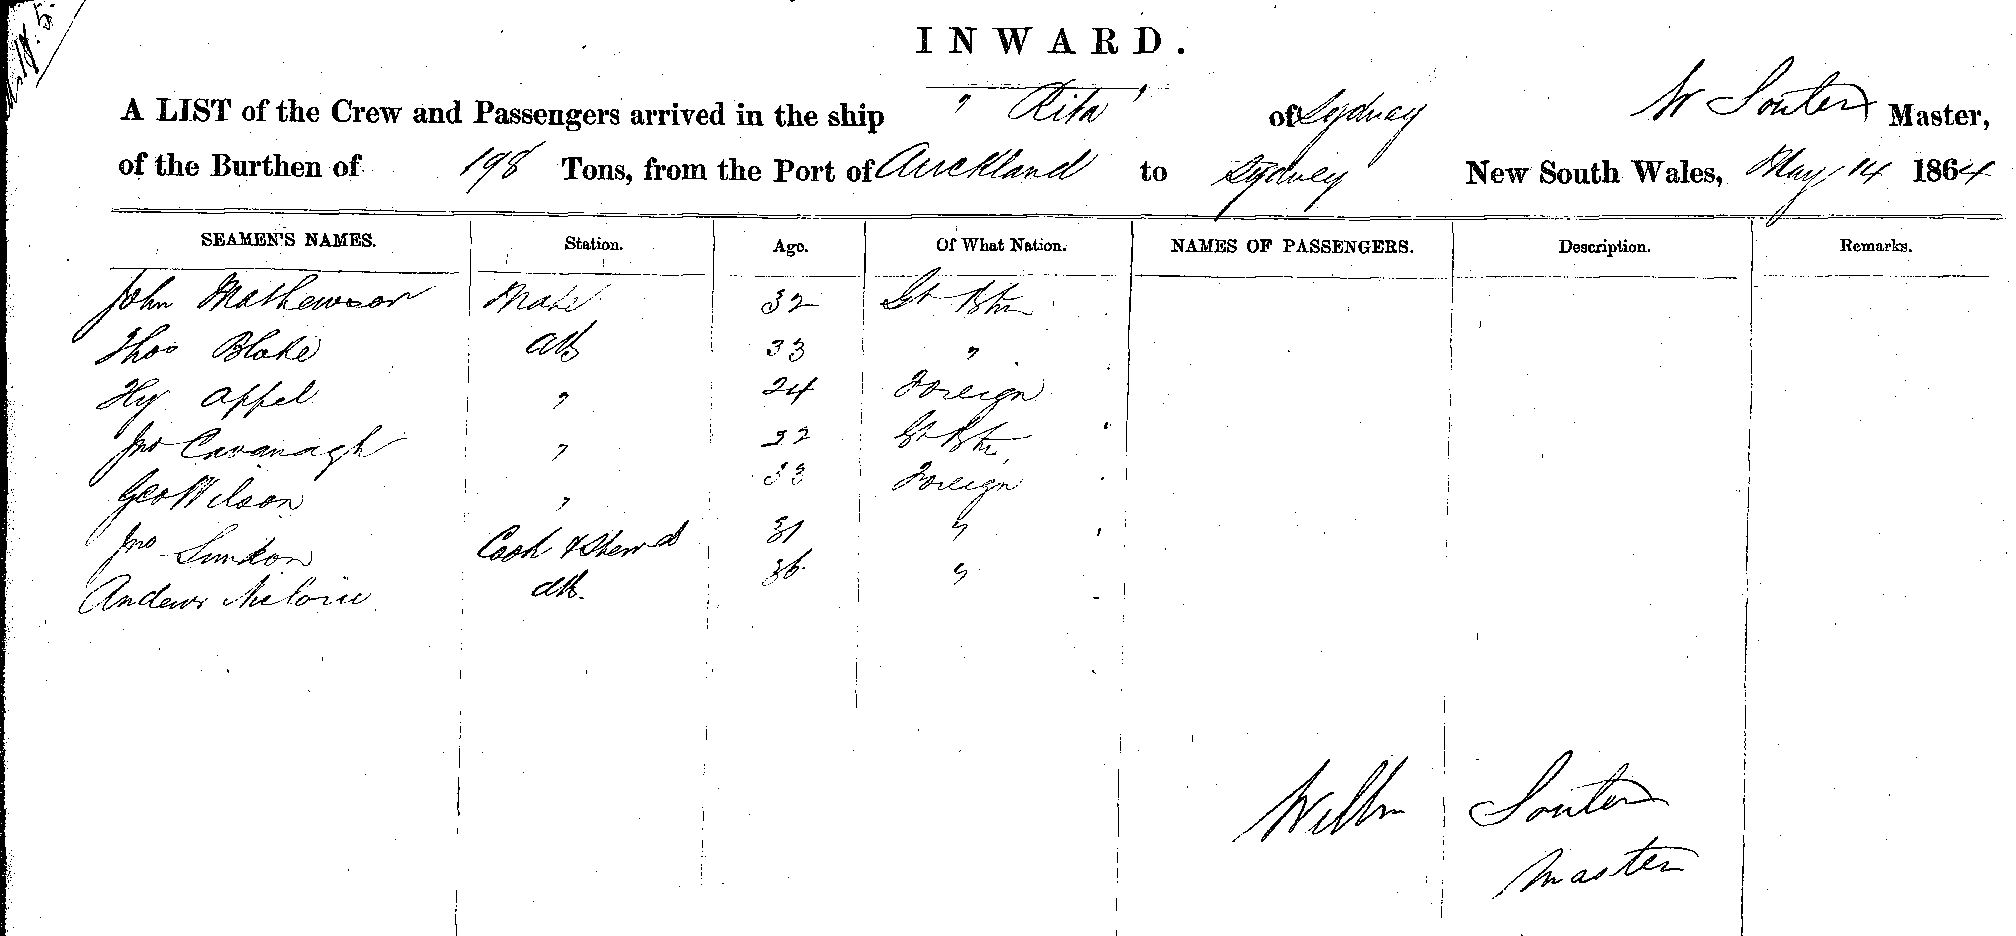 INWARD.
A LIST of the Crew and Passengers arrived in the ship "Rita" of Sydney W Souter Master,
of the Burthen of 198 Tons, from the Port of Auckland to Sydney New South Wales, May 14 1864
SEAMEN'S NAMES. Station. Age. Of What Nation. NAMES OF PASSENGERS. Description. Remarks.
John Mathewson Mate 32 Gt Btn
Thos Blake AB 33 "
Hy Appel " 24 Foreign
Jno Cavanagh " 22 Gt Btn
Geo Wilson " 33 Foreign
Jno Cook & Stewd 31 "
Andew AB. 36 "
Willm Souter
Master